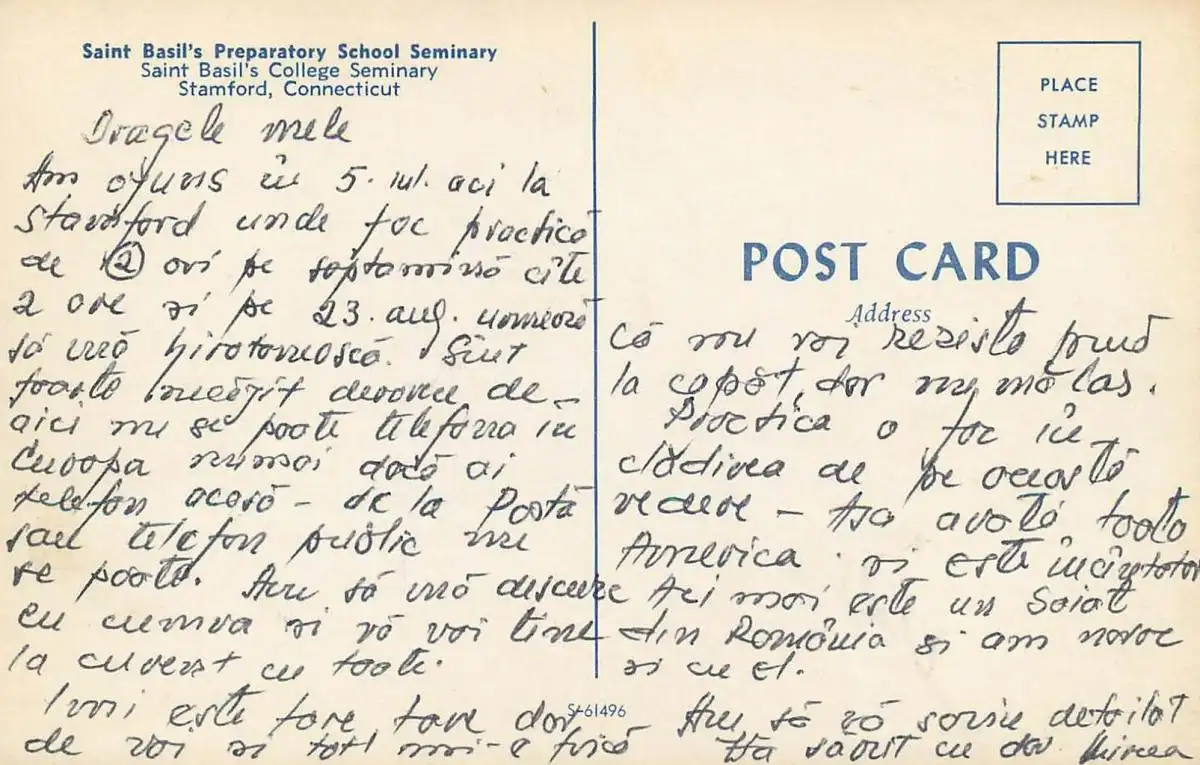 Saint Basil's Preparatory School Seminary
Saint Basil's College Seminary
Stamford, Connecticut
Dragele mele
Am ajuns în 5. iul. aci la
Stamford unde fac practică
de 2 ori pe săptamînă cîte
2 ore si pe 23. aug. urmează
să mă hirotonească. Sînt
foarte necăjit deoarece de
aici nu se poate telefona în
Europa numai dacă ai
telefon acasă – de la Postă
sau telefon public nu
se poate. Am să mă descurc
eu cumva si vă voi tine
la curent cu toate.
Imi este tare tare dor
de voi si tot mi-e frică
PLACE
STAMP
HERE
POST CARD
Address
că nu voi rezista pînă
la capăt, dar nu mă las.
Practica o fac în
clădirea de pe această
vedere – Asa arată toată
America si este încîntător
Aci mai este un băiat
din România si am noroc
si cu el.
S-61496
Am să vă scriu detailat
Vă sărut cu dor Mircea